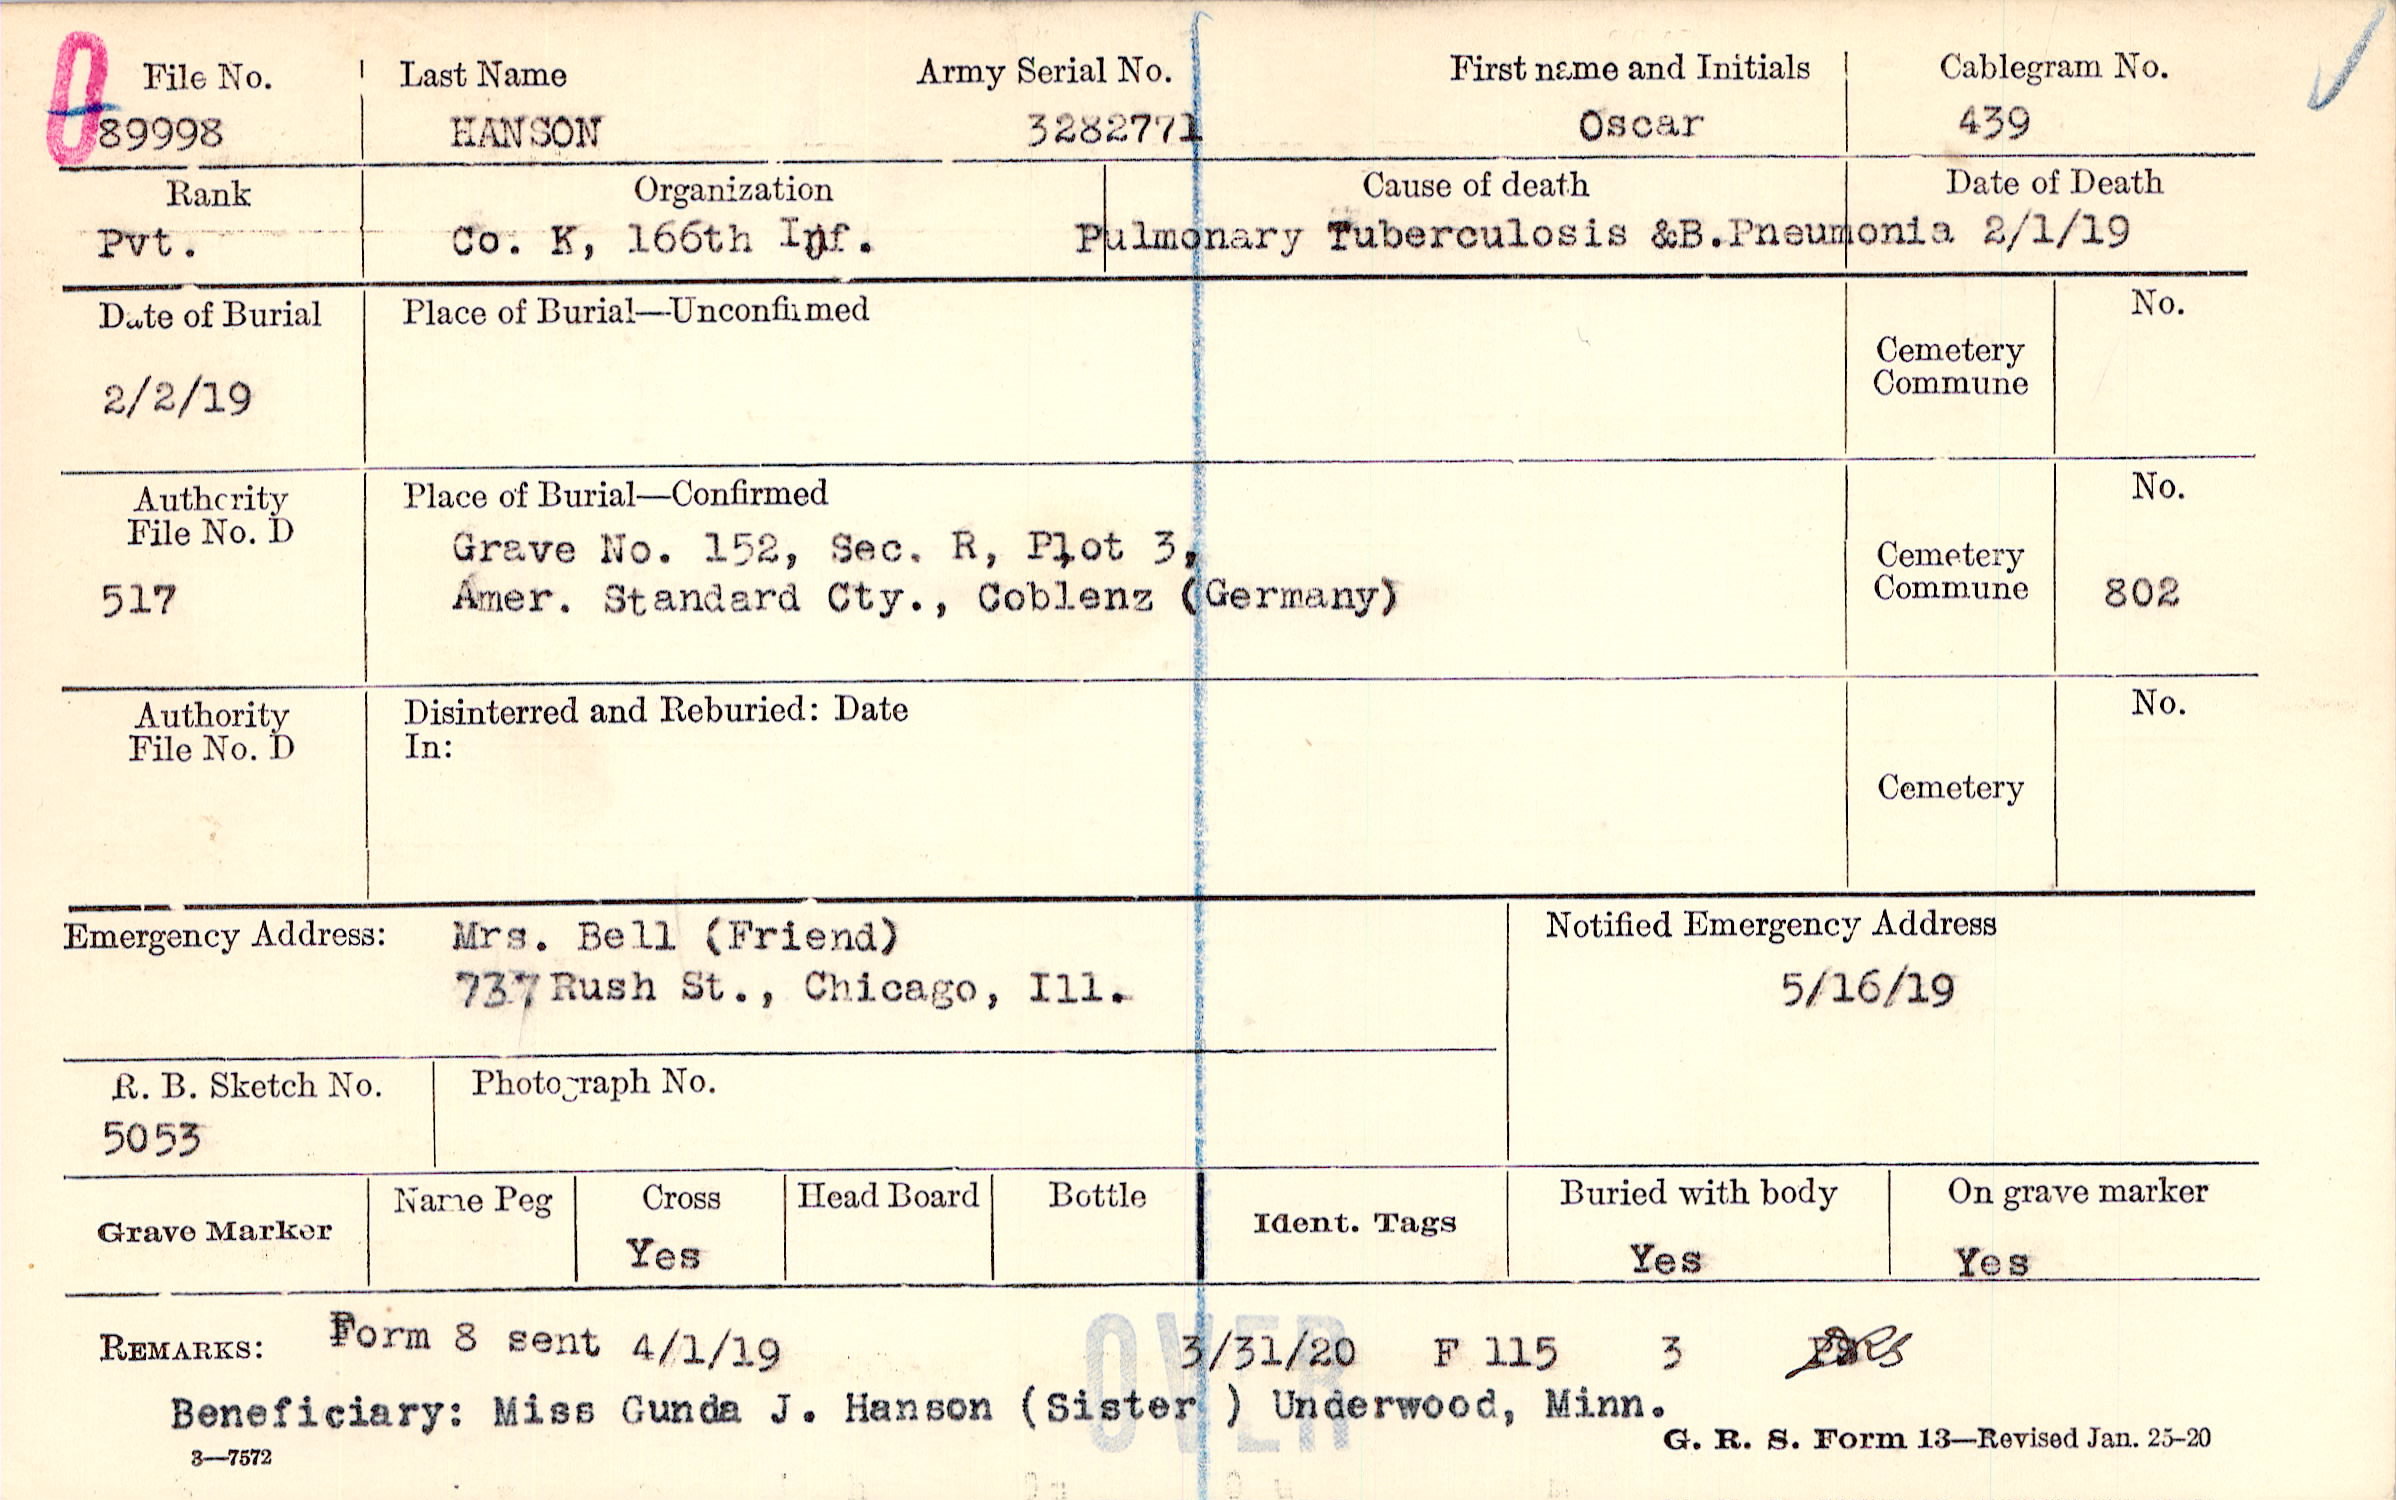 File No. Last Name Army Serial No. First name and Initials Cablegram No.
89998 HANSON 3282771 Oscar 439
Rank Organization Cause of death Date of Death
Pvt. Co. K, 166th Inf. Pulmonary Tuberculosis &B.Pneumonia 2/1/19
Date of Burial Place of Burial—Unconfirmed No.
Cemetery
Commune
2/2/19
Authority Place of Burial—Confirmed No.
File No. D
Grave No. 152, Sec. R, Plot 3,
Cemetery
Commune
517 Amer. Standard Cty., Coblenz (Germany) 802
Authority Disinterred and Reburied: Date No.
File No. D In:
Cemetery
Emergency Address: Mrs. Bell (Friend) Notified Emergency Address
737 Rush St., Chicago, Ill. 5/16/19
R. B. Sketch No. Photograph No.
5053
Grave Marker Name Peg Cross Head Board Bottle Ident. Tags Buried with body On grave marker
Yes Yes Yes
REMARKS: Form 8 sent 4/1/19 3/31/20 F 115 3
OVER
Beneficiary: Miss Gunda J. Hanson (Sister ) Underwood, Minn.
G. R. S. Form 13—Revised Jan. 25-20
3—7572